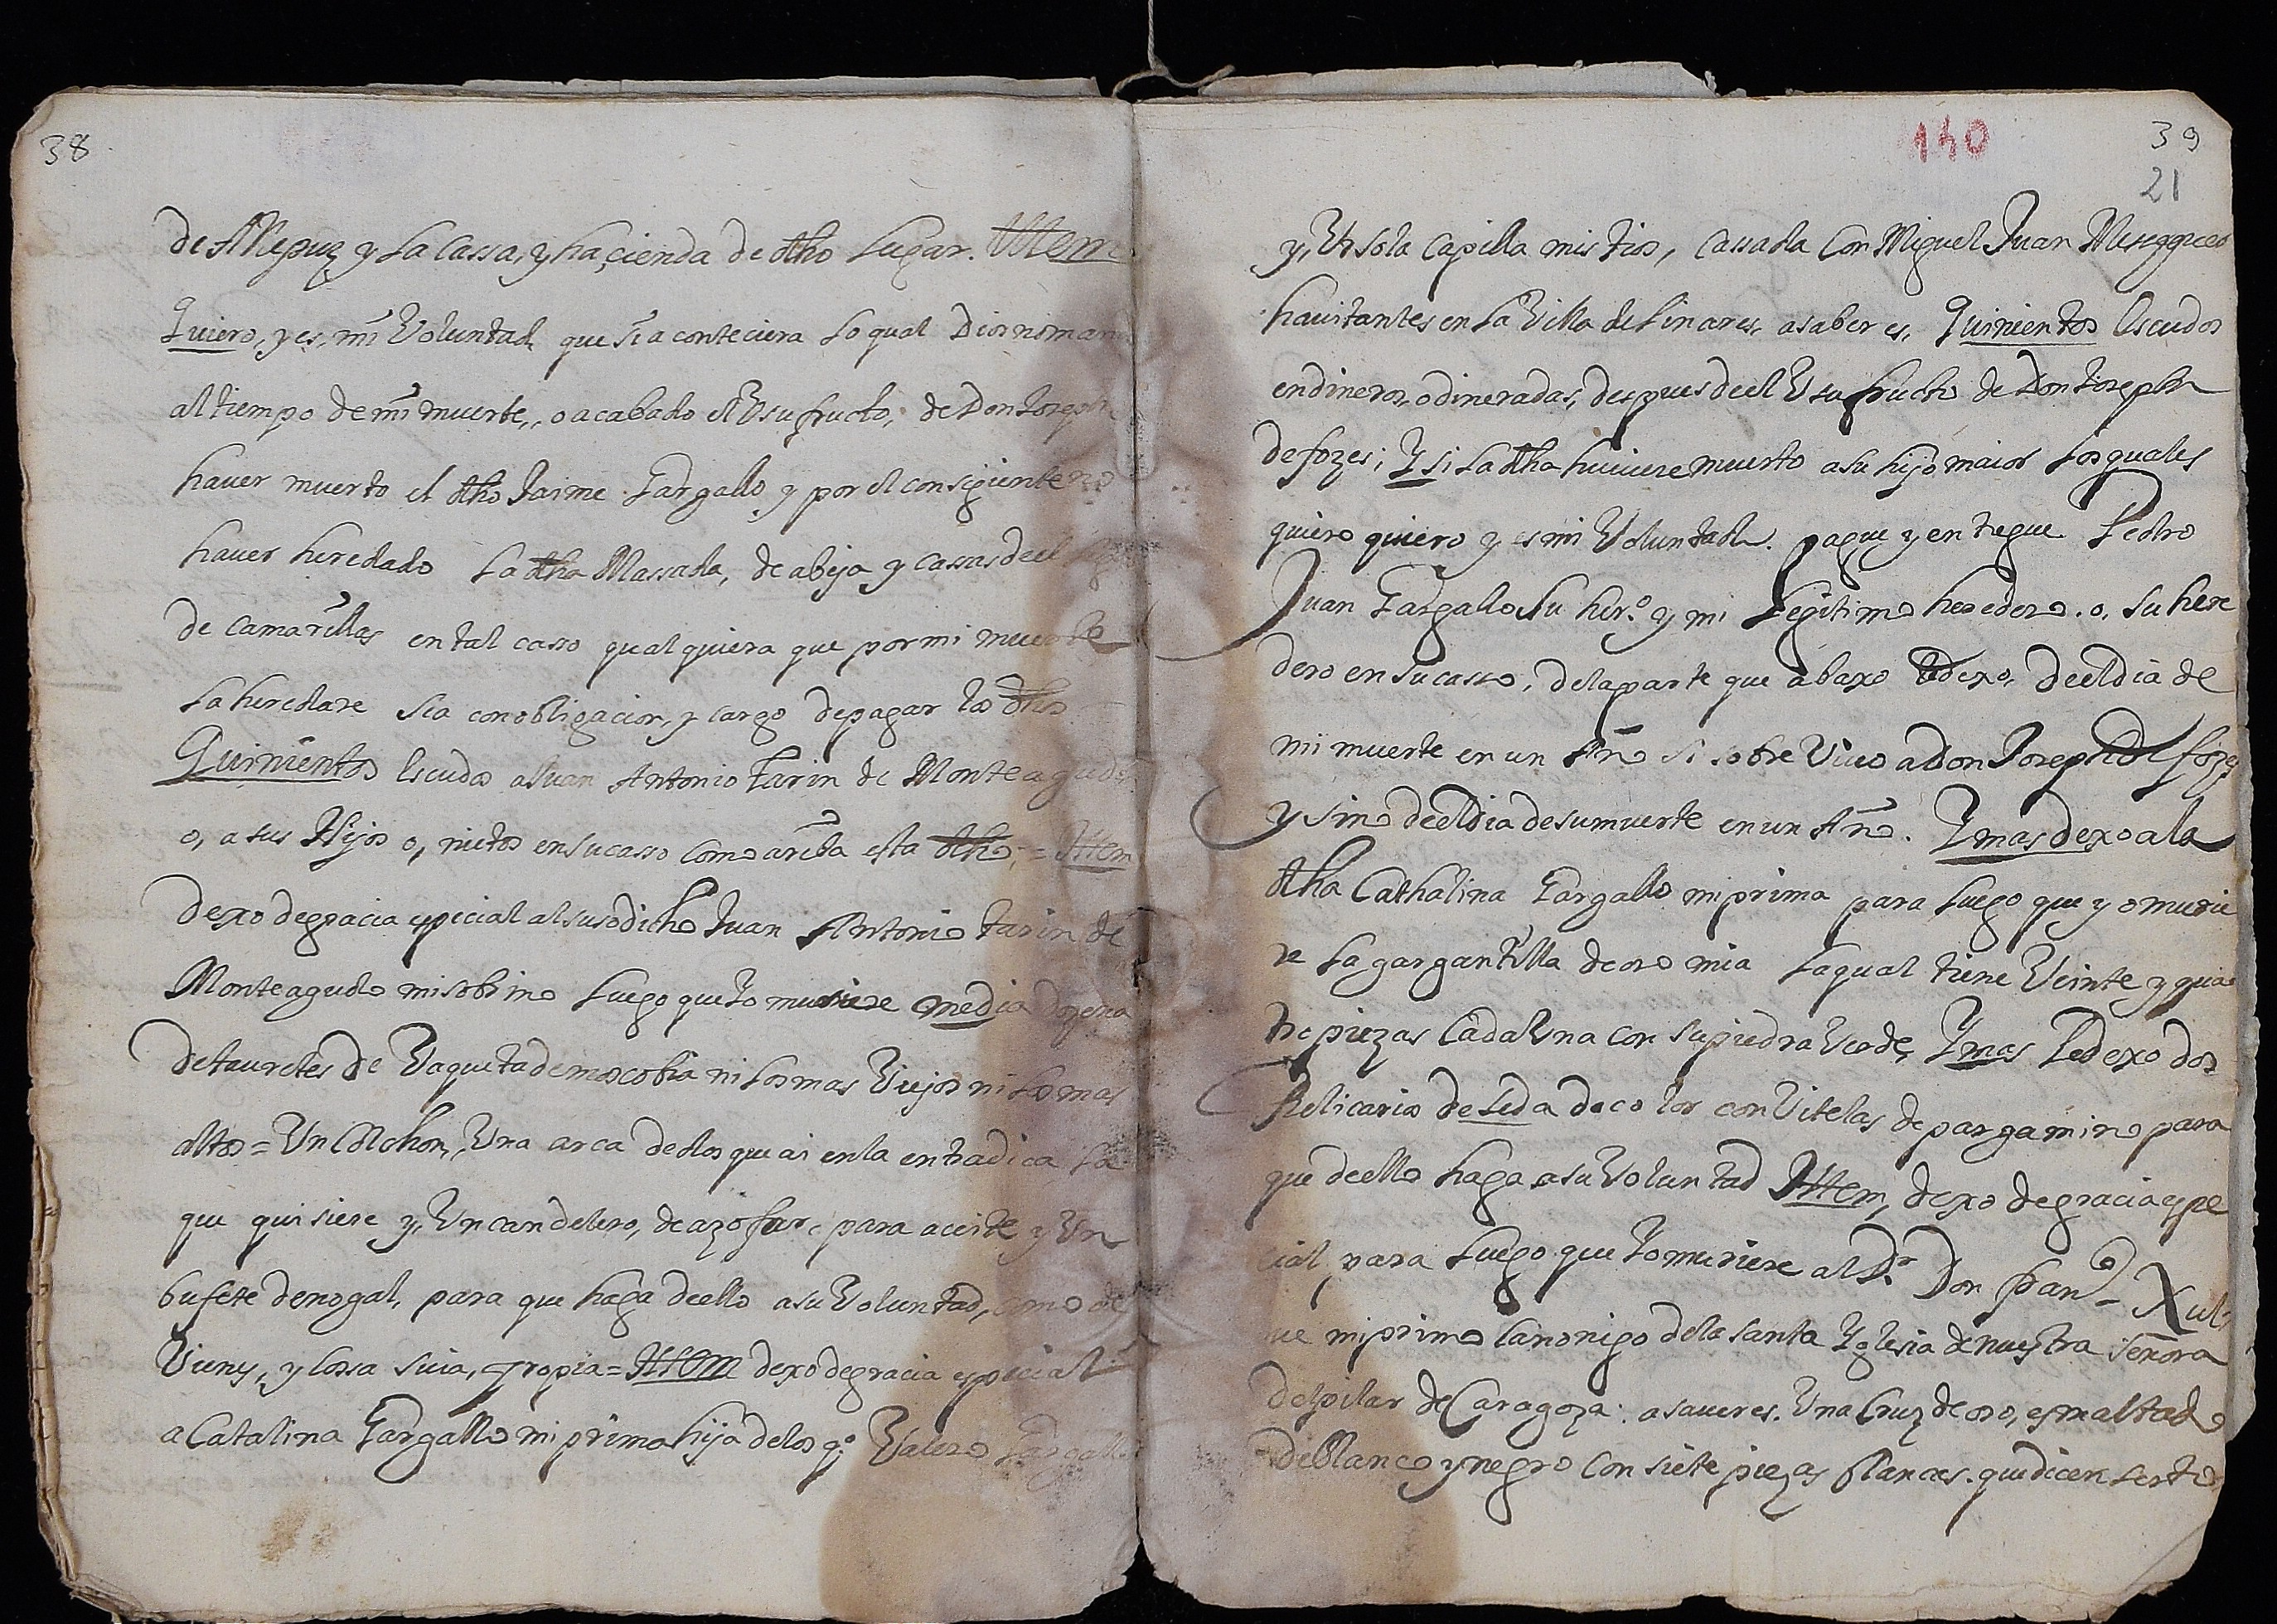 38
de Allepuz y la Cassa, y haçienda de dho Lugar. Ittem
Quiero, y es, mi Voluntad, que si aconteciera lo qual Dios no man
al tiempo de mi muerte,, o acabado el Usufructo, de Don Joseph
hauer muerto el dho Jaime Gargallo y por el consiguiente no
hauer heredado la dha Massada, de abeja y cassas de el
de Camarillas en tal casso qualquiera que por mi muerte
la heredare sia con obligacion, y cargo de pagar los dhos
Quinientos Escudos a Juan Antonio Tarin de Monteagudo
o, a sus Hijos o, nietos en su casso como arriba esta dho; = Ittem
dexo de gracia especial al susodicho Juan Antonio tarin de
Monteagudo mi sobrino luego que Yo muriere media dozena
de tauretes de Vaqueta de moscobia ni los mas Viejos ni los mas
altos = Un Colchon, Una arca de dos que ai en la entradica la
que quisiere y, Un candelero, de azofar, para aceite y Un
bufete de nogal, para que haga de ello a su Voluntad, como de
Vienes, y cossa suia, propia = Ittem dexo de gracia especial
a Catalina Gargallo mi prima hija de los qº. Valero Gargallo
140
39
21
y, Ursola Capilla mis tios, Cassada Con Miguel Juan
hauitantes en la Villa de linares, a saber es, Quinientos Escudos
en dineros, o dineradas, despues de el Usufructo de Don Joseph
de fozes; Y si la dha huuiere muerto a su hijo maior los quales
quiero quiero y es mi Voluntad. pague y entregue Pedro
Juan Gargallo su herº. y mi legitimo heredero. o, su here
dero en su casso, de la parte que abaxo le dexo, de el dia de
mi muerte en un Año si sobre Viuo a Don Joseph de fozes
y sino de el dia de su muerte en un Año. Y mas dexo a la
dha Cathalina Gargallo mi prima para luego que yo murie
re la gargantilla de oro mia la qual tiene Veinte y qua
tro piezas Cada Una con su piedra Verde, Y mas le dexo dos
Relicarios de seda de color con Vitelas de pargamino para
que de ello haga a su Voluntad Ittem, dexo de gracia espe
cial para luego que Yo muriere al Dr. Don Franco Xul
ue mi primo Canonigo de la santa Yglesia de nuestra señora
del pilar de Çaragoza: a sauer es. Una Cruz de oro, esmaltada
de Blanco y negro con siete piezas blancas. que dicen ser